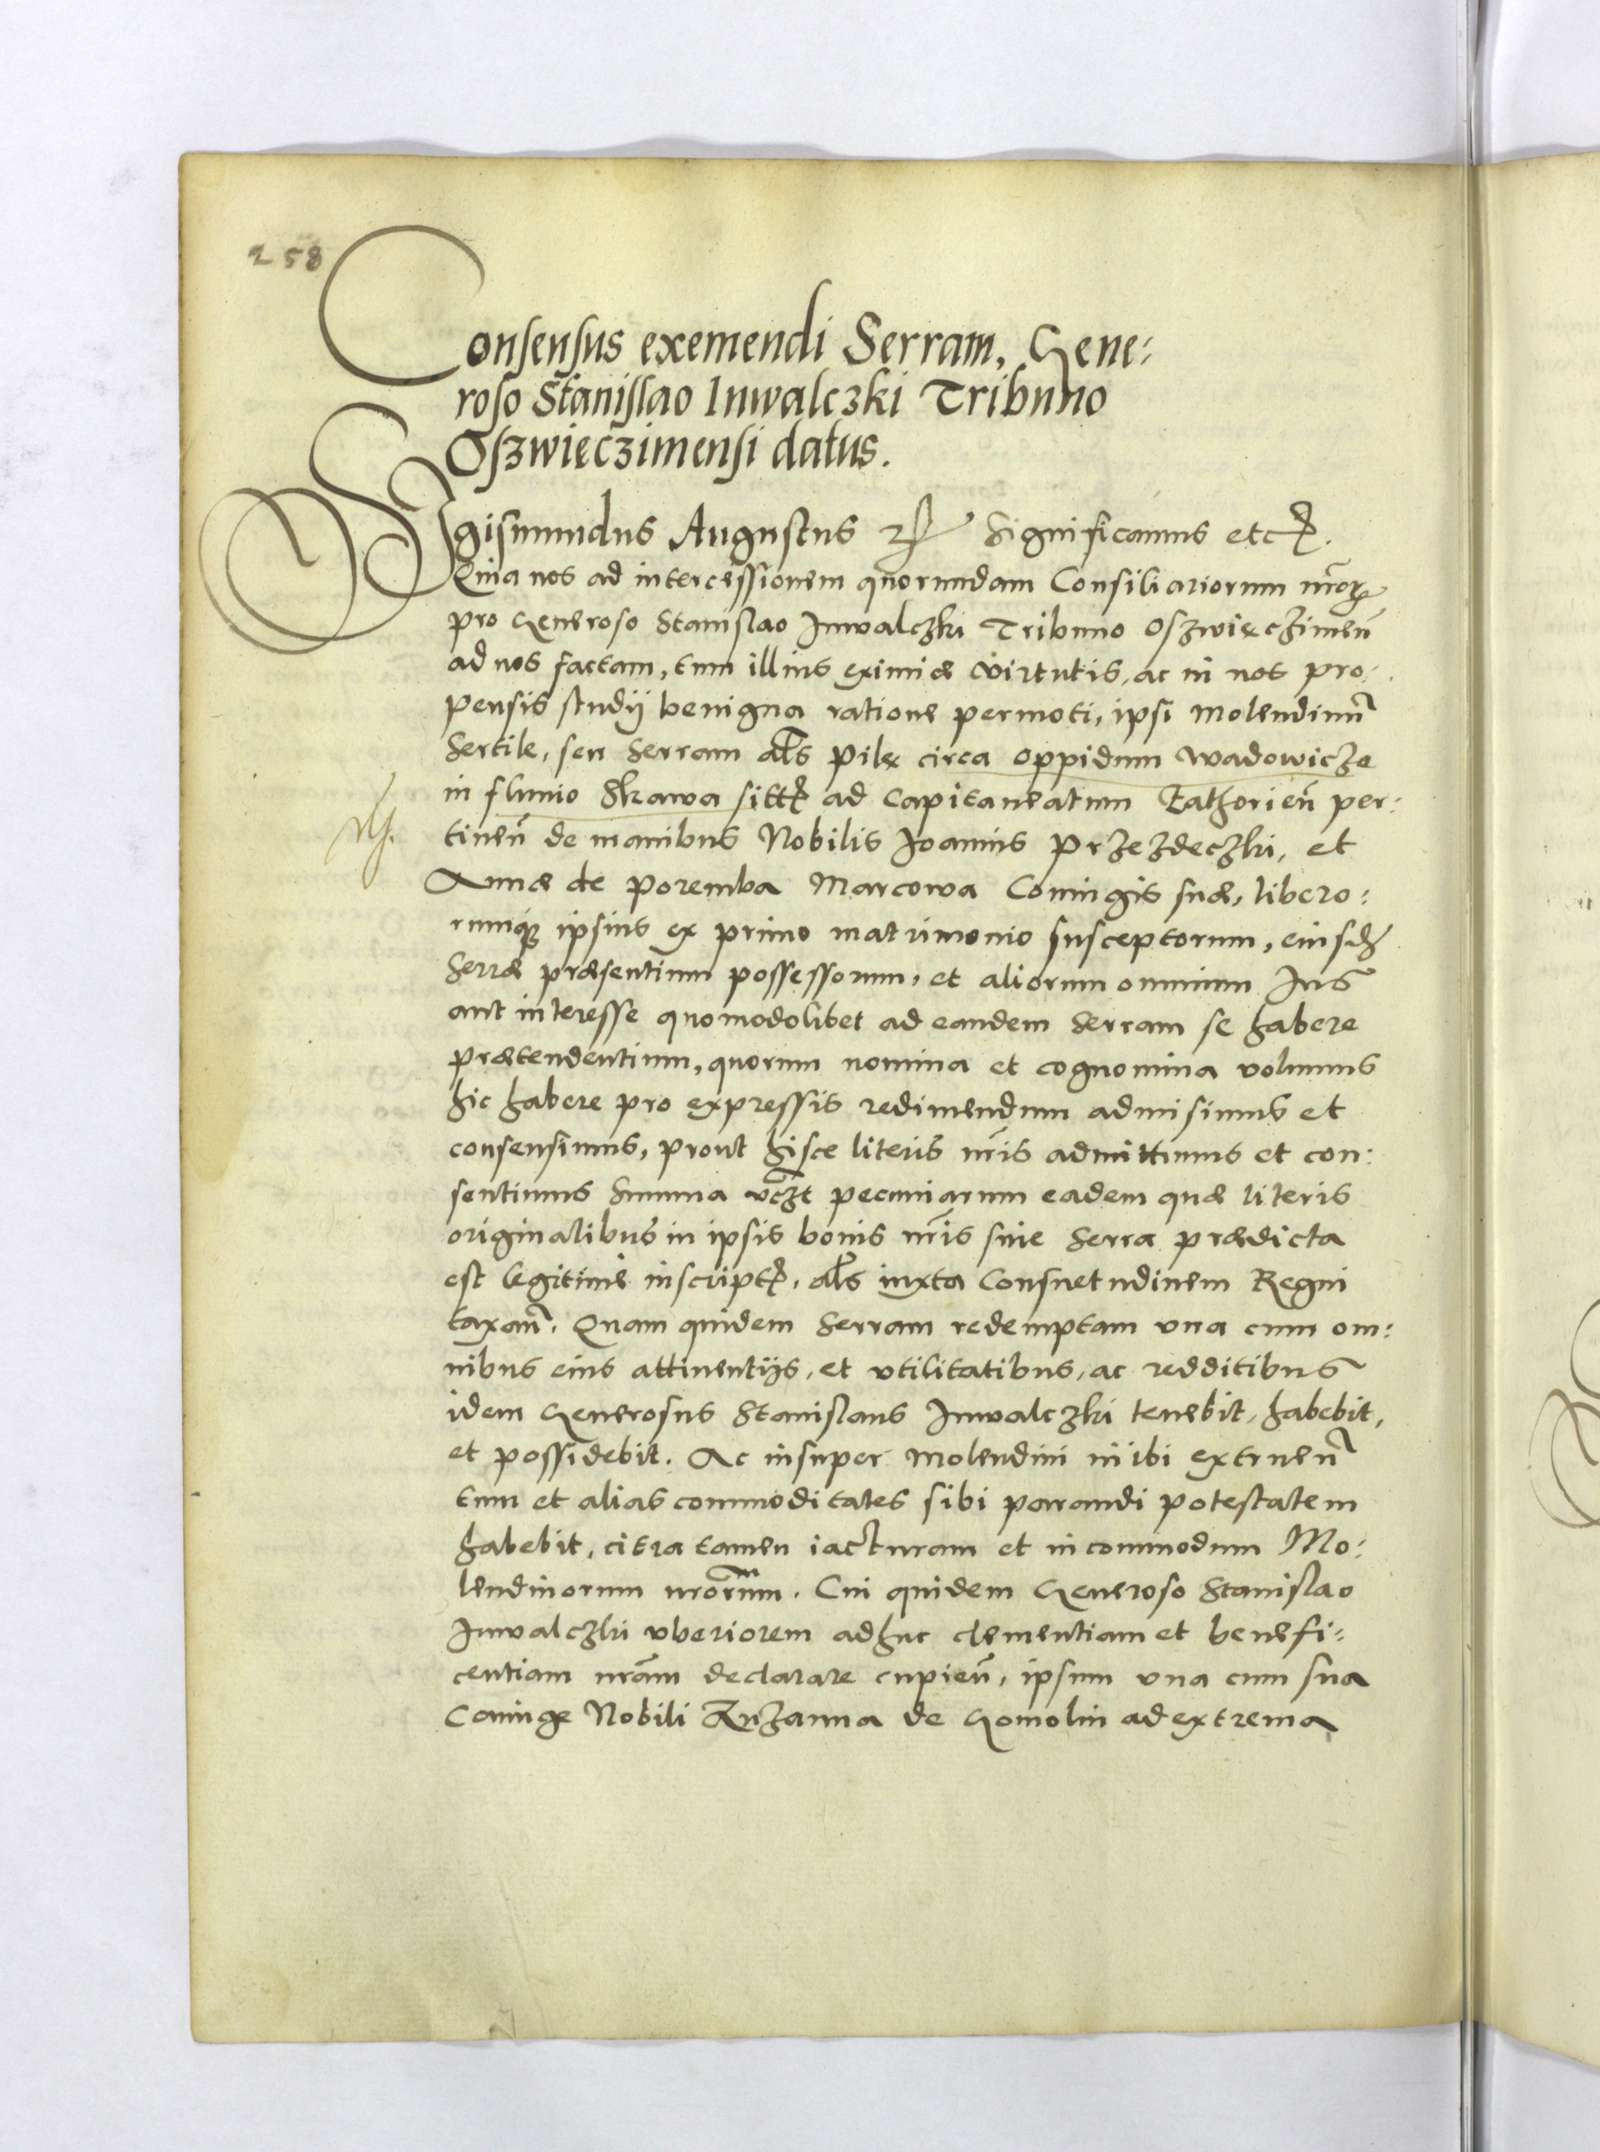 258
Consensus exemendi Serram, Gene:
roso Stanislao Inwalczki Tribuno
Oszwięczimensi datus.
Sigismundus Augustus Significamus etc.
Quia nos ad intercessionem quorundam Consiliariorum nror
pro Generoso Stanislao Inwalczki Tribuno Oszwięczimen
ad nos factam, tum illius eximiæ virtutis, ac in nos pro-
pensis studij benigna ratione permoti, ipsi Molendinu
Sertile, seu Serram als Pilę circa oppidum Wadowicze
in fluuio Skawa sitt ad Capitaneatum Zathorien per:
tinen de manibus Nobilis Joannis Przezdeczki, et
Annæ de Poremba Marcowa Coniugis suæ, libero:
rumque ipsius ex primo matrimonio susceptorum, eiusd
Serræ præsentium possessorum, et aliorum omnium Ius
aut interesse quomodolibet ad eandem Serram se habere
prætendentium, quorum nomina et cognomina volumus
hic habere pro expressis redimendum admisimus et
consensimus, prout hisce literis nris admittimus et con:
sentimus Summa vczt pecuniarum eadem quæ literis
originalibus in ipsis bonis nris siue Serra prædicta
est legitime inscript, als iuxta Consuetudinem Regni
taxan. Quam quidem Serram redemptam vna cum om:
nibus eius attinentijs, et vtilitatibus, ac redditibus
idem Generosus Stanislaus Inwalczki tenebit, habebit,
et possidebit. Ac insuper Molendini inibi extruen
tum et alias commoditates sibi parandi potestatem
habebit, citra tamen iacturam et incommodum Mo:
lendinorum nrorum. Cui quidem Generoso Stanislao
Inwalczki vberiorem adhuc clementiam et benefi:
centiam nram declarare cupien, ipsum vna cum sua
Coniuge Nobili Zuzanna de Gomolin ad extrema